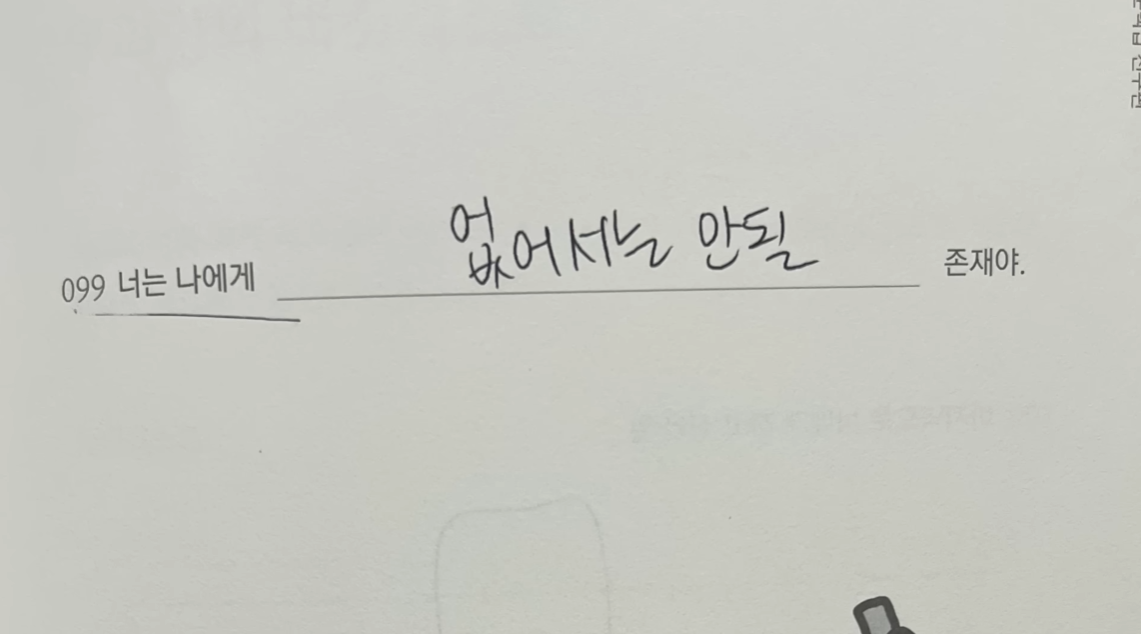 099 너는 나에게 없어서는 안될 존재야.